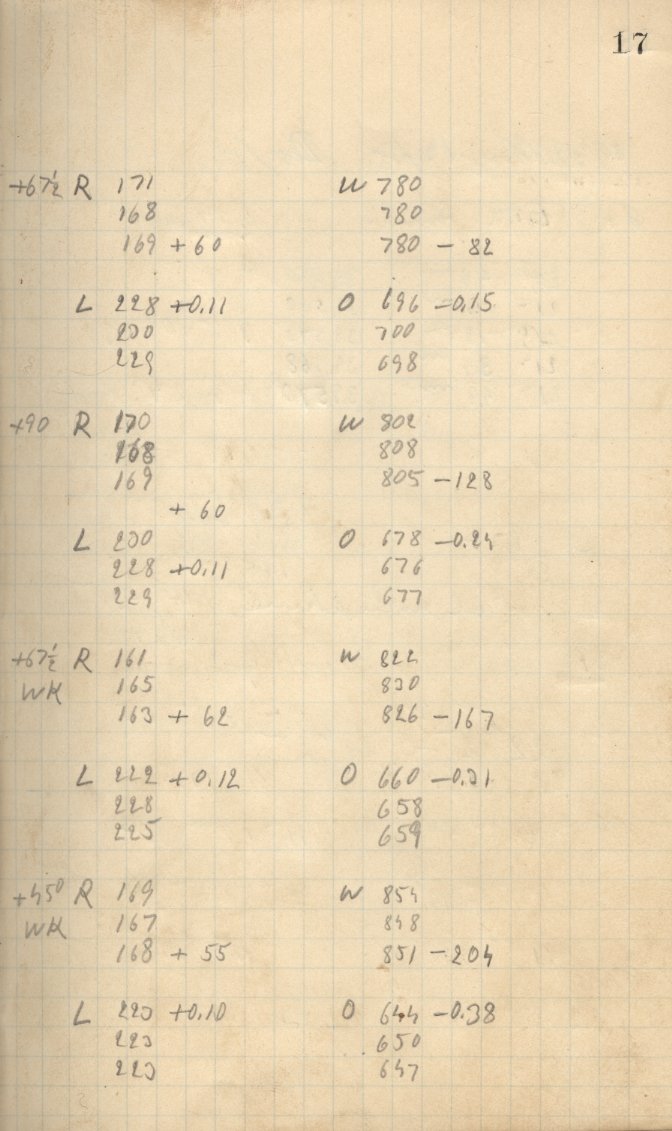 17
+67½ R 171 W 780
168 780
169 + 60 780 - 82
L 228 +0.11 O 696 -0.15
230 700
229 698
+90 R 170 W 802
168 808
169 805 - 128
+ 60
L 230 O 678 -0.24
228 +0.11 676
229 677
+67½ R 161 W 822
WK 165 830
163 + 62 826 - 167
L 222 + 0.12 O 660 -0.31
228 658
225 659
+45° R 169 W 854
WK 167 848
168 + 55 851 - 204
L 223 +0.10 O 644 -0.38
223 650
223 647